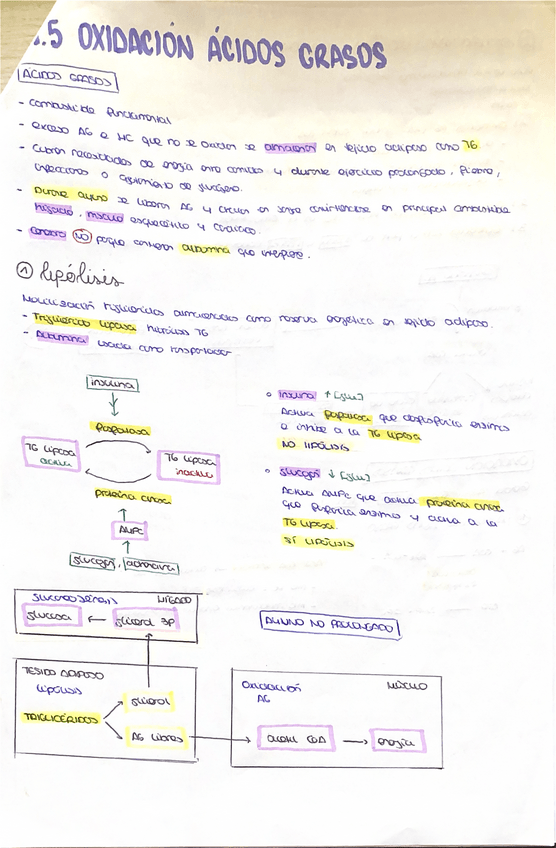 .5 OXIDACIÓN ÁCIDOS GRASOS
ÁCIDOS GRASOS
- combustible fundamental
- exceso AG e HC que no se oxidan se almacenan en tejido adiposo como TG
- Cubren necesidades de energía entre comidas y durante ejercicio prolongado, fiebre,
infecciones o agotamiento de glucógeno.
- Durante ayuno se liberan AG y circulan en sangre convirtiéndose en principal combustible
hígado, músculo esquelético y cardiaco.
- Cerebro NO porque contienen albumina que interfiere.
① Lipólisis
Movilización triglicéridos almacenados como reserva energética en tejido adiposo.
- Triglicérido lipasa hidroliza TG
- Albumina usada como transportador
insulina
fosfatasa
TG lipasa
activa
TG lipasa
inactiva
proteína cinasa
AMPc
glucagón, adrenalina
○ Insulina ↑ [gluc]
Activa fosfatasa que desfosforila enzima
e inhibe a la TG lipasa
NO LIPÓLISIS
○ glucagón ↓ [gluc]
Activa AMPc que activa proteína cinasa
que fosforila enzima y activa a la
TG lipasa.
SÍ LIPÓLISIS
gluconeogénesis HÍGADO
glucosa ← glicerol 3P
AYUNO NO PROLONGADO
TEJIDO ADIPOSO
lipólisis
TRIGLICÉRIDOS
glicerol
AG libres
Oxidación MÚSCULO
AG
acetil CoA → energía